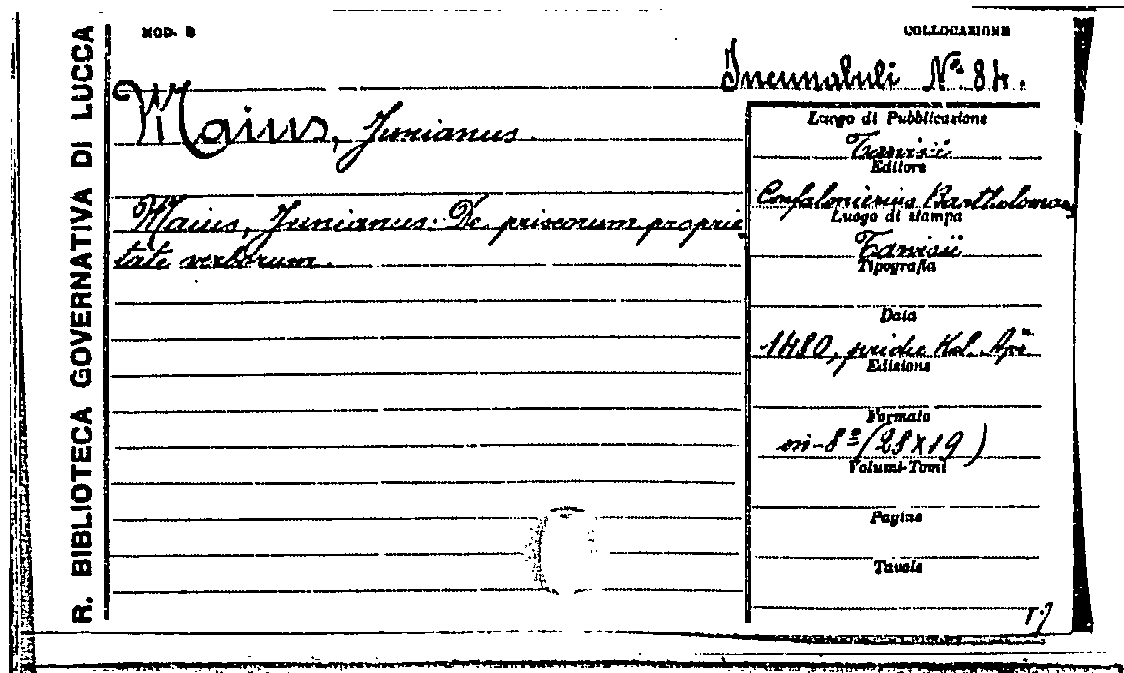 R. BIBLIOTECA GOVERNATIVA DI LUCCA
MOD. B
COLLOCAZIONE
Incunabuli Nº 84.
Maius, Junianus.
Maius, Junianus: De priscorum proprie-
tate verborum.
Luogo di Pubblicazione
Tarvisii
Editore
Confalonierius Bartholomaeus
Luogo di stampa
Tarvisii
Tipografia
Data
1480, pridie Kal. Apr.
Edizione
Formato
in-8º (28x19)
Volumi-Tomi
Pagine
Tavole